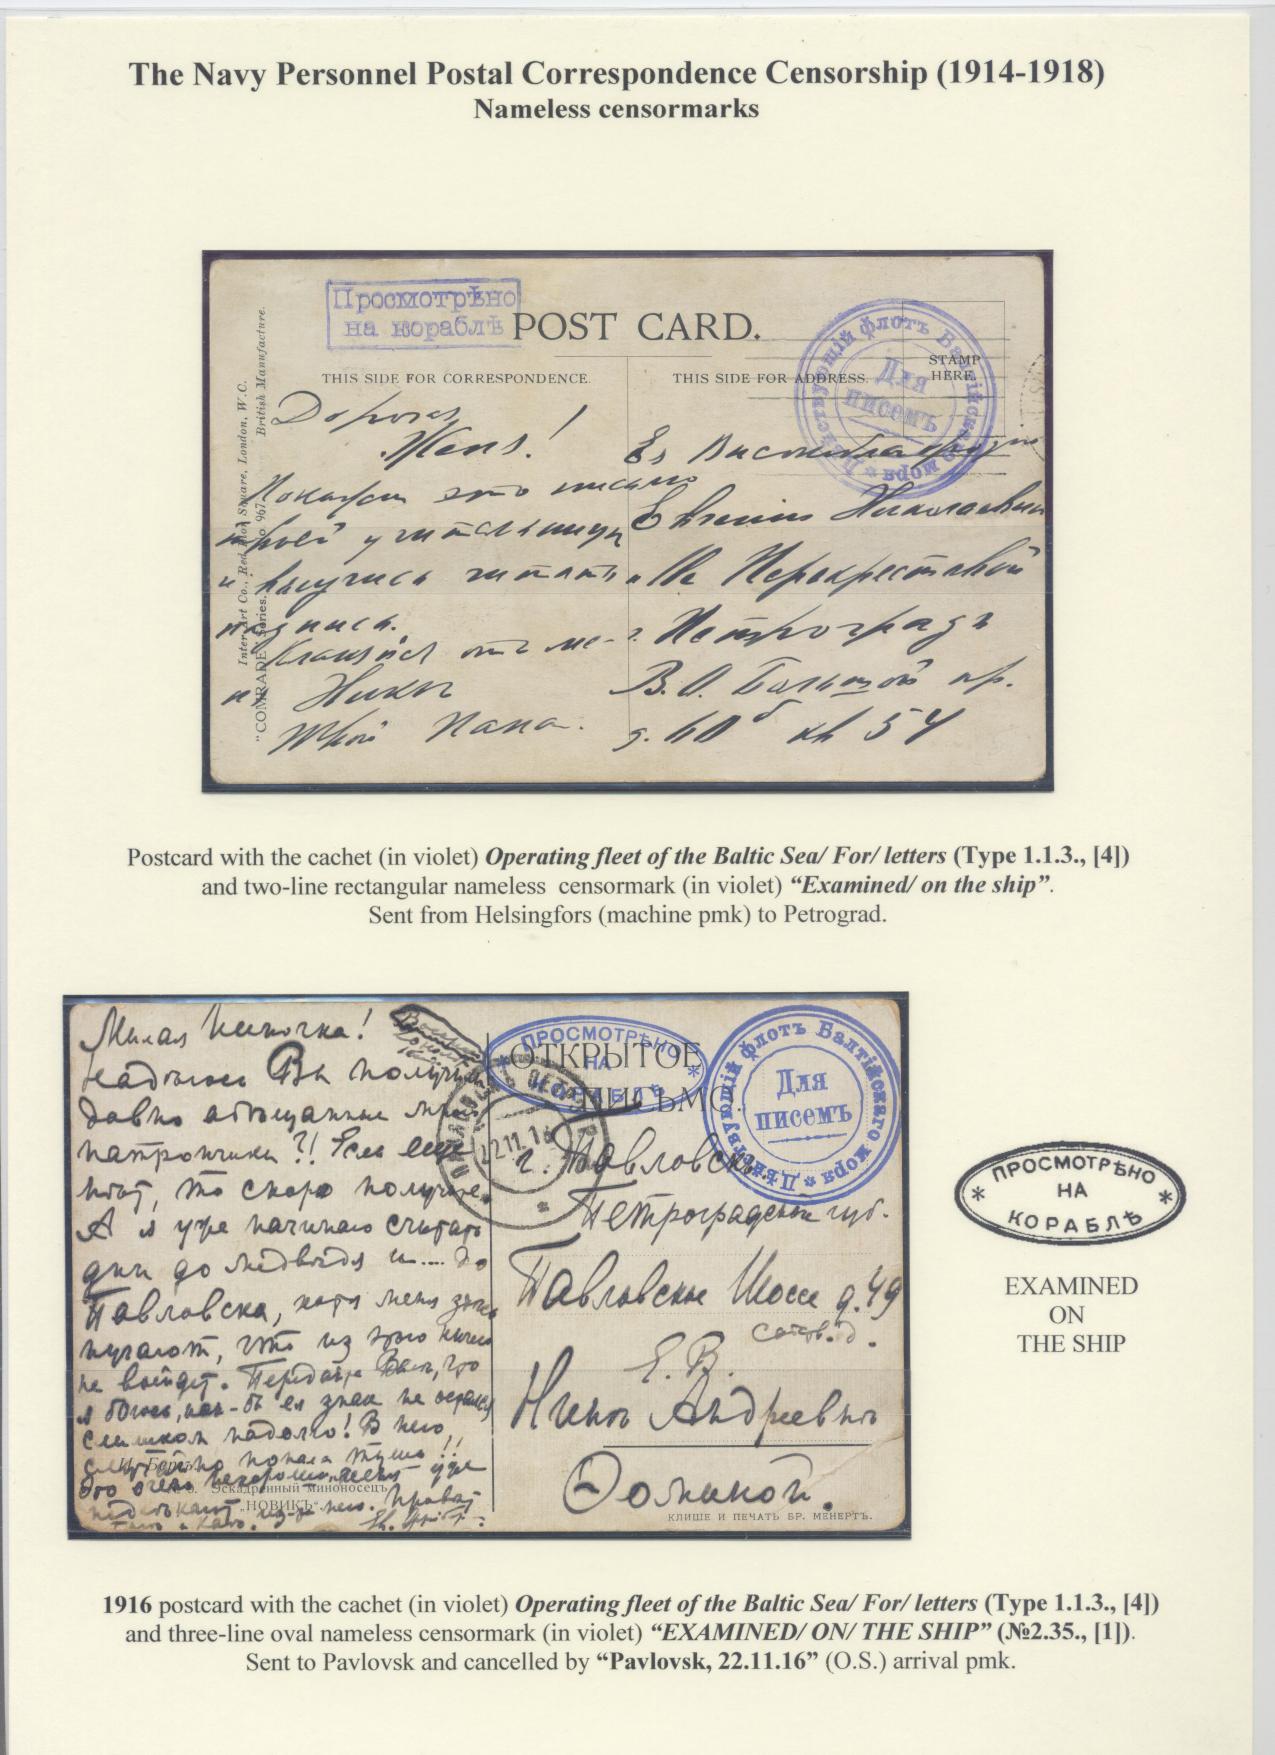 The Navy Personnel Postal Correspondence Censorship (1914-1918)
Nameless censormarks
Просмотрѣно
на кораблѣ
POST CARD.
THIS SIDE FOR CORRESPONDENCE.
THIS SIDE FOR ADDRESS.
STAMP
HERE.
Дѣйствующій флотъ Балтійскаго моря
Для
писемъ
Inter-Art Co., Red Lion Square, London, W.C.
British Manufacture.
"COMRADE" Series. No 967
Дорогая
Женя!
Покажи это письмо
твоей учительницѣ
и выучись читать
подпись.
Кланяйся отъ ме-
Твой Папа.
Ея Высокоблагородію
Евгеніи Николаевнѣ
Перекрестовой
Петроградъ
В.О. Большой пр.
д. 60б кв 54
Postcard with the cachet (in violet) Operating fleet of the Baltic Sea/ For/ letters (Type 1.1.3., [4])
and two-line rectangular nameless censormark (in violet) “Examined/ on the ship”.
Sent from Helsingfors (machine pmk) to Petrograd.
Милая Ниночка!
Надѣюсь Вы получили
давно обѣщанные мною
патрончики?! Если еще
нѣтъ, то скоро получите.
А я уже начинаю считать
дни до медвѣдя и.... до
Павловска, хотя меня
пугаютъ, что изъ этого ничего
не выйдет. Передайте
слишком надолго! В него,
ОТКРЫТОЕ
ПИСЬМО
ПРОСМОТРѢНО
НА
КОРАБЛѢ
Дѣйствующій флотъ Балтійскаго моря
Для
писемъ
22.11.16
г. Павловскъ
Петроградской губ.
Павловское Шоссе д. 49
собств. д.
Е. В.
Нинѣ Андреевнѣ
Эскадренный миноносецъ
„НОВИКЪ“.
КЛИШЕ И ПЕЧАТЬ БР. МЕНЕРТЪ.
ПРОСМОТРѢНО
НА
КОРАБЛѢ
EXAMINED
ON
THE SHIP
1916 postcard with the cachet (in violet) Operating fleet of the Baltic Sea/ For/ letters (Type 1.1.3., [4])
and three-line oval nameless censormark (in violet) “EXAMINED/ ON/ THE SHIP” (№2.35., [1]).
Sent to Pavlovsk and cancelled by “Pavlovsk, 22.11.16” (O.S.) arrival pmk.